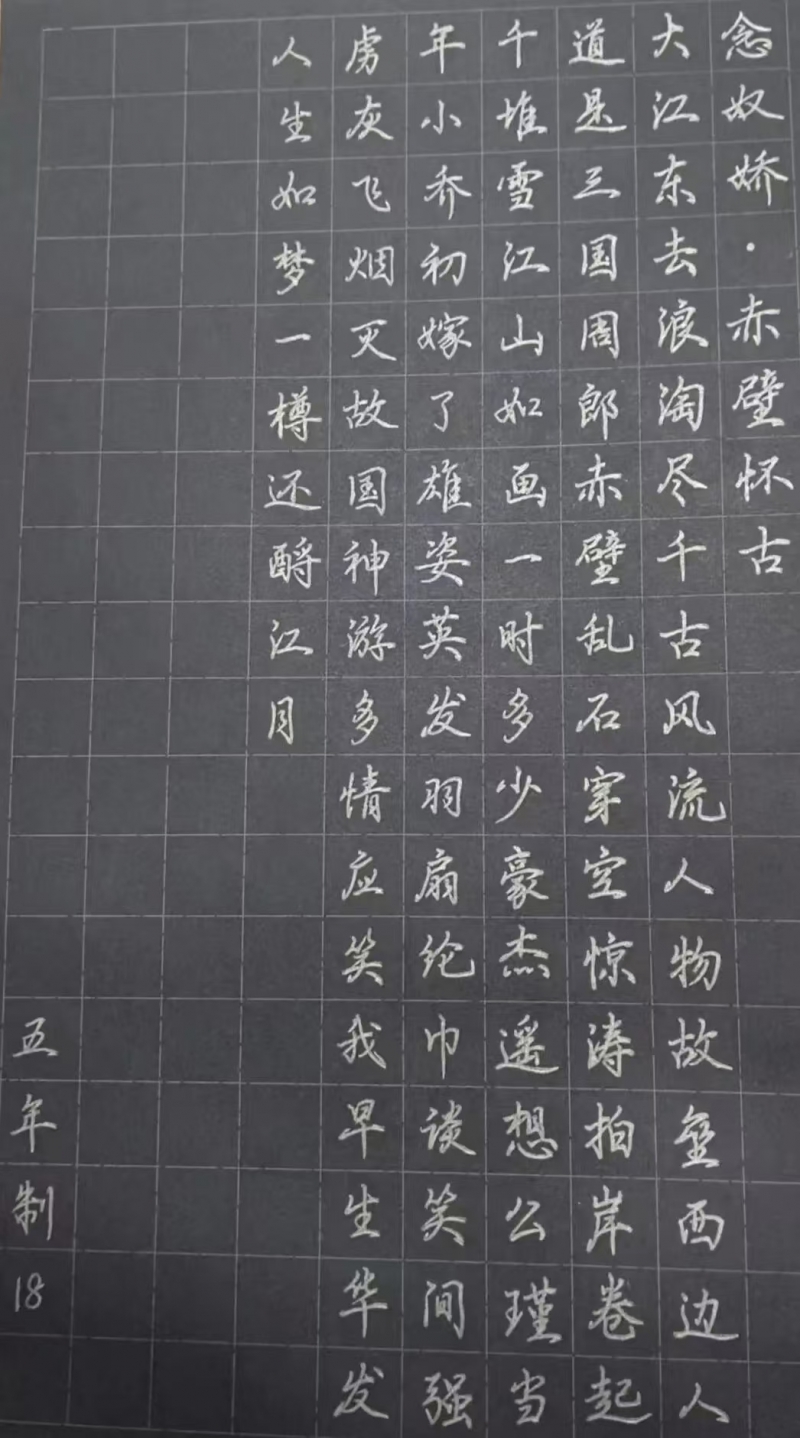 念奴娇·赤壁怀古
大江东去浪淘尽千古风流人物故垒西边人
道是三国周郎赤壁乱石穿空惊涛拍岸卷起
千堆雪江山如画一时多少豪杰遥想公瑾当
年小乔初嫁了雄姿英发羽扇纶巾谈笑间强
虏灰飞烟灭故国神游多情应笑我早生华发
人生如梦一樽还酹江月
五年制18